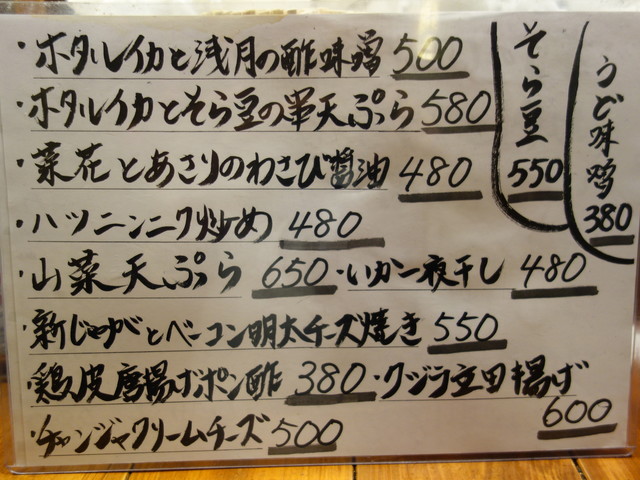 ・ホタルイカと浅月の酢味噌 500
・ホタルイカとそら豆の串天ぷら 580
・菜花とあさりのわさび醤油 480
・ハツニンニク炒め 480
・山菜天ぷら 650 ・いか一夜干し 480
・新じゃがとベーコン明太チーズ焼き 550
・鶏皮唐揚げポン酢 380 ・クジラ立田揚げ
600
・チャンジャクリームチーズ 500
そら豆 550
うど味噌 380